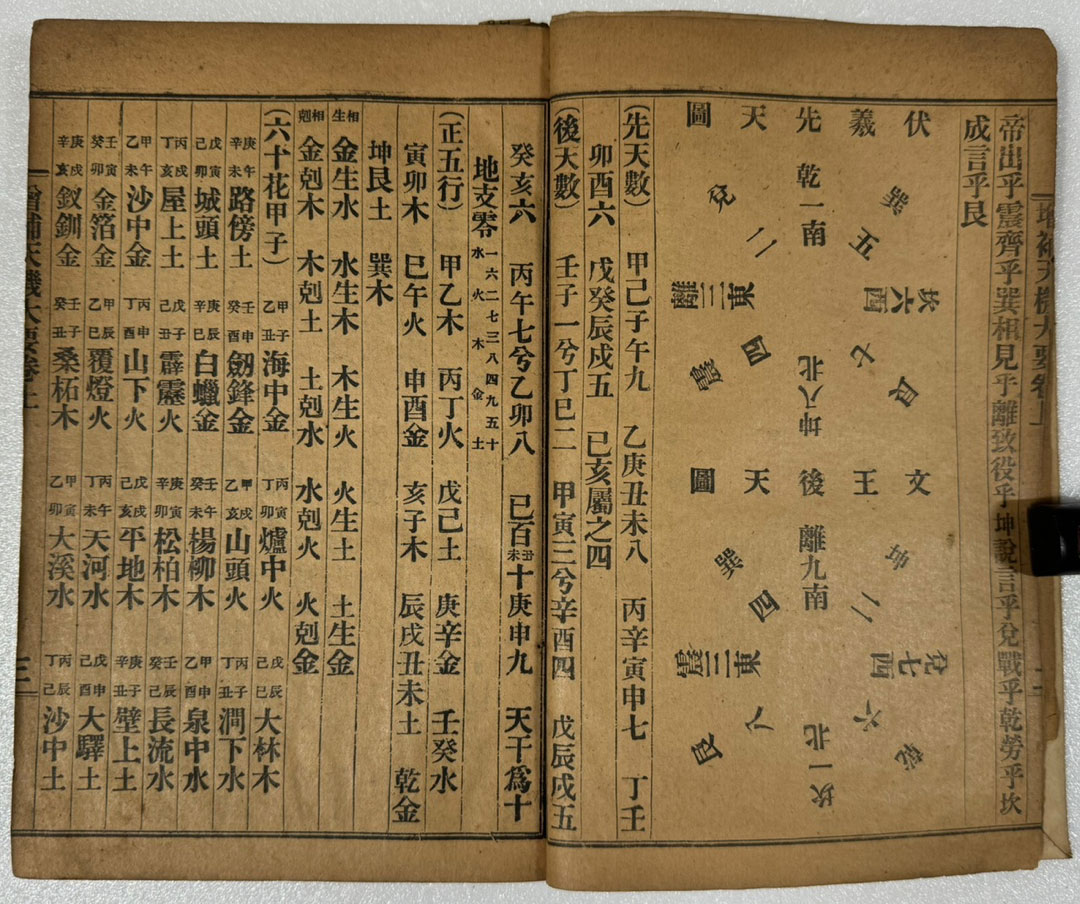 帝出乎震齊乎巽相見乎離致役乎坤說言乎兌戰乎乾勞乎坎
成言乎艮
伏羲先天圖
乾一南
兌二
離三東
震四
巽五
坎六西
艮七
坤八北
文王後天圖
離九南
坤二
兌七西
乾六
坎一北
艮八
震三東
巽四
(先天數) 甲己子午九 乙庚丑未八 丙辛寅申七 丁壬
卯酉六 戊癸辰戌五 巳亥屬之四
(後天數) 壬子一兮丁巳二 甲寅三兮辛酉四 戊辰戌五
癸亥六 丙午七兮乙卯八 已百丑未十庚申九 天干爲十
地支零 一六水 二七火 三八木 四九金 五十土
(正五行) 甲乙木 丙丁火 戊己土 庚辛金 壬癸水
寅卯木 巳午火 申酉金 亥子木 辰戌丑未土 乾金
坤艮土 巽木
相生 金生水 水生木 木生火 火生土 土生金
相剋 金剋木 木剋土 土剋水 水剋火 火剋金
(六十花甲子) 甲子乙丑海中金 丙寅丁卯爐中火 戊辰己巳大林木
庚午辛未路傍土 壬申癸酉劒鋒金 甲戌乙亥山頭火 丙子丁丑澗下水
戊寅己卯城頭土 庚辰辛巳白蠟金 壬午癸未楊柳木 甲申乙酉泉中水
丙戌丁亥屋上土 戊子己丑霹靂火 庚寅辛卯松柏木 壬辰癸巳長流水
甲午乙未沙中金 丙申丁酉山下火 戊戌己亥平地木 庚子辛丑壁上土
壬寅癸卯金箔金 甲辰乙巳覆燈火 丙午丁未天河水 戊申己酉大驛土
庚戌辛亥釵釧金 壬子癸丑桑柘木 甲寅乙卯大溪水 丙辰丁巳沙中土
增補天機大要卷上 三